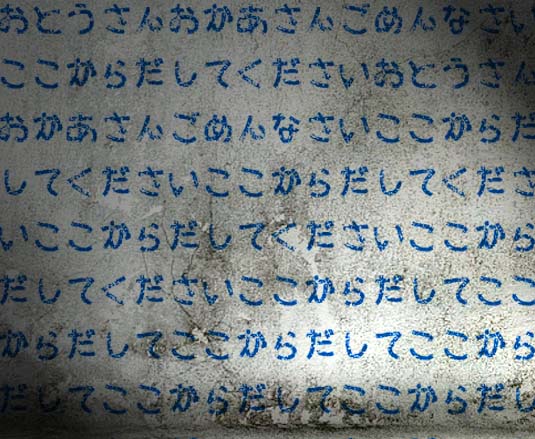 おとうさんおかあさんごめんなさい
ここからだしてくださいおとうさん
おかあさんごめんなさいここからだ
してくださいここからだしてくださ
いここからだしてくださいここから
だしてくださいここからだしてここ
からだしてここからだしてここから
だしてここからだしてここからだし